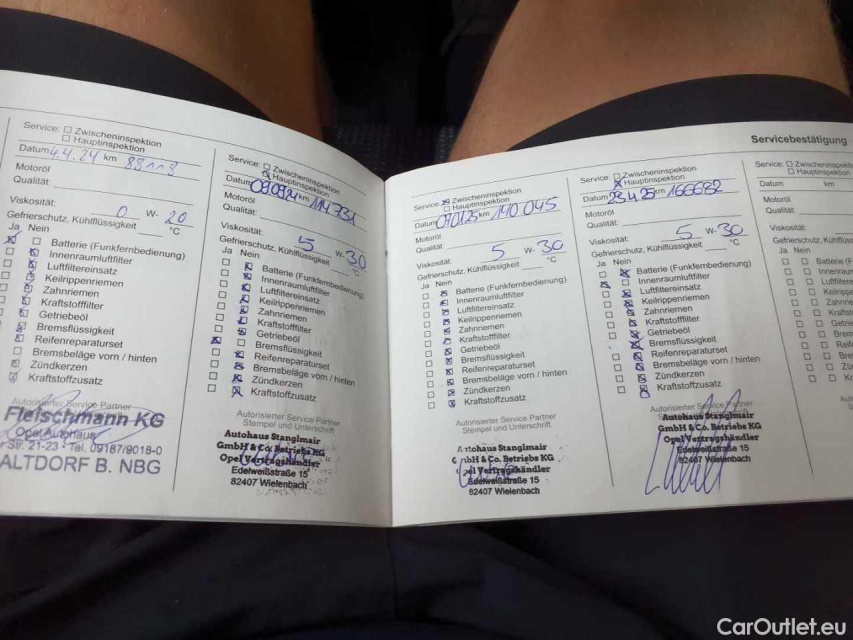 Service: Zwischeninspektion
Hauptinspektion
Datum 4.4.24 km 88118
Motoröl
Qualität:
Viskosität: 0 W- 20
Gefrierschutz, Kühlflüssigkeit °C
Ja Nein
Batterie (Funkfernbedienung)
Innenraumluftfilter
Luftfiltereinsatz
Keilrippenriemen
Zahnriemen
Kraftstofffilter
Getriebeöl
Bremsflüssigkeit
Reifenreparaturset
Bremsbeläge vorn / hinten
Zündkerzen
Kraftstoffzusatz
Autorisierter Service Partner
Fleischmann KG
Opel Autohaus
Str. 21-23 • Tel. 09187/9018-0
ALTDORF B. NBG
Service: Zwischeninspektion
Hauptinspektion
Datum 090924 km 114731
Motoröl
Qualität:
Viskosität: 5 W- 30
Gefrierschutz, Kühlflüssigkeit °C
Ja Nein
Batterie (Funkfernbedienung)
Innenraumluftfilter
Luftfiltereinsatz
Keilrippenriemen
Zahnriemen
Kraftstofffilter
Getriebeöl
Bremsflüssigkeit
Reifenreparaturset
Bremsbeläge vorn / hinten
Zündkerzen
Kraftstoffzusatz
Autorisierter Service Partner
Stempel und Unterschrift
Autohaus Stanglmair
GmbH & Co. Betriebs KG
Opel Vertragshändler
Edelweißstraße 15
82407 Wielenbach
Service: Zwischeninspektion
Hauptinspektion
Datum 070125 km 140 045
Motoröl
Qualität:
Viskosität: 5 W- 30
Gefrierschutz, Kühlflüssigkeit °C
Ja Nein
Batterie (Funkfernbedienung)
Innenraumluftfilter
Luftfiltereinsatz
Keilrippenriemen
Zahnriemen
Kraftstofffilter
Getriebeöl
Bremsflüssigkeit
Reifenreparaturset
Bremsbeläge vorn / hinten
Zündkerzen
Kraftstoffzusatz
Autorisierter Service Partner
Stempel und Unterschrift
Autohaus Stanglmair
GmbH & Co. Betriebs KG
Opel Vertragshändler
Edelweißstraße 15
82407 Wielenbach
Servicebestätigung
Service: Zwischeninspektion
Hauptinspektion
Datum 23.4.25 km 166682
Motoröl
Qualität:
Viskosität: 5 W- 30
Gefrierschutz, Kühlflüssigkeit °C
Ja Nein
Batterie (Funkfernbedienung)
Innenraumluftfilter
Luftfiltereinsatz
Keilrippenriemen
Zahnriemen
Kraftstofffilter
Getriebeöl
Bremsflüssigkeit
Reifenreparaturset
Bremsbeläge vorn / hinten
Zündkerzen
Kraftstoffzusatz
Autorisierter Service Partner
Stempel und Unterschrift
Autohaus Stanglmair
GmbH & Co. Betriebs KG
Opel Vertragshändler
Edelweißstraße 15
82407 Wielenbach
Service: Zwischeninspektion
Hauptinspektion
Datum km
Motoröl
Qualität:
Viskosität:
Gefrierschutz, Kühlflüssig
Ja Nein
Batterie (F
Innenraum
Luftfilter
Keilrippe
Zahnriem
Kraftst
Getrie
Brem
Reife
Bre
Zü
Kr
CarOutlet.eu